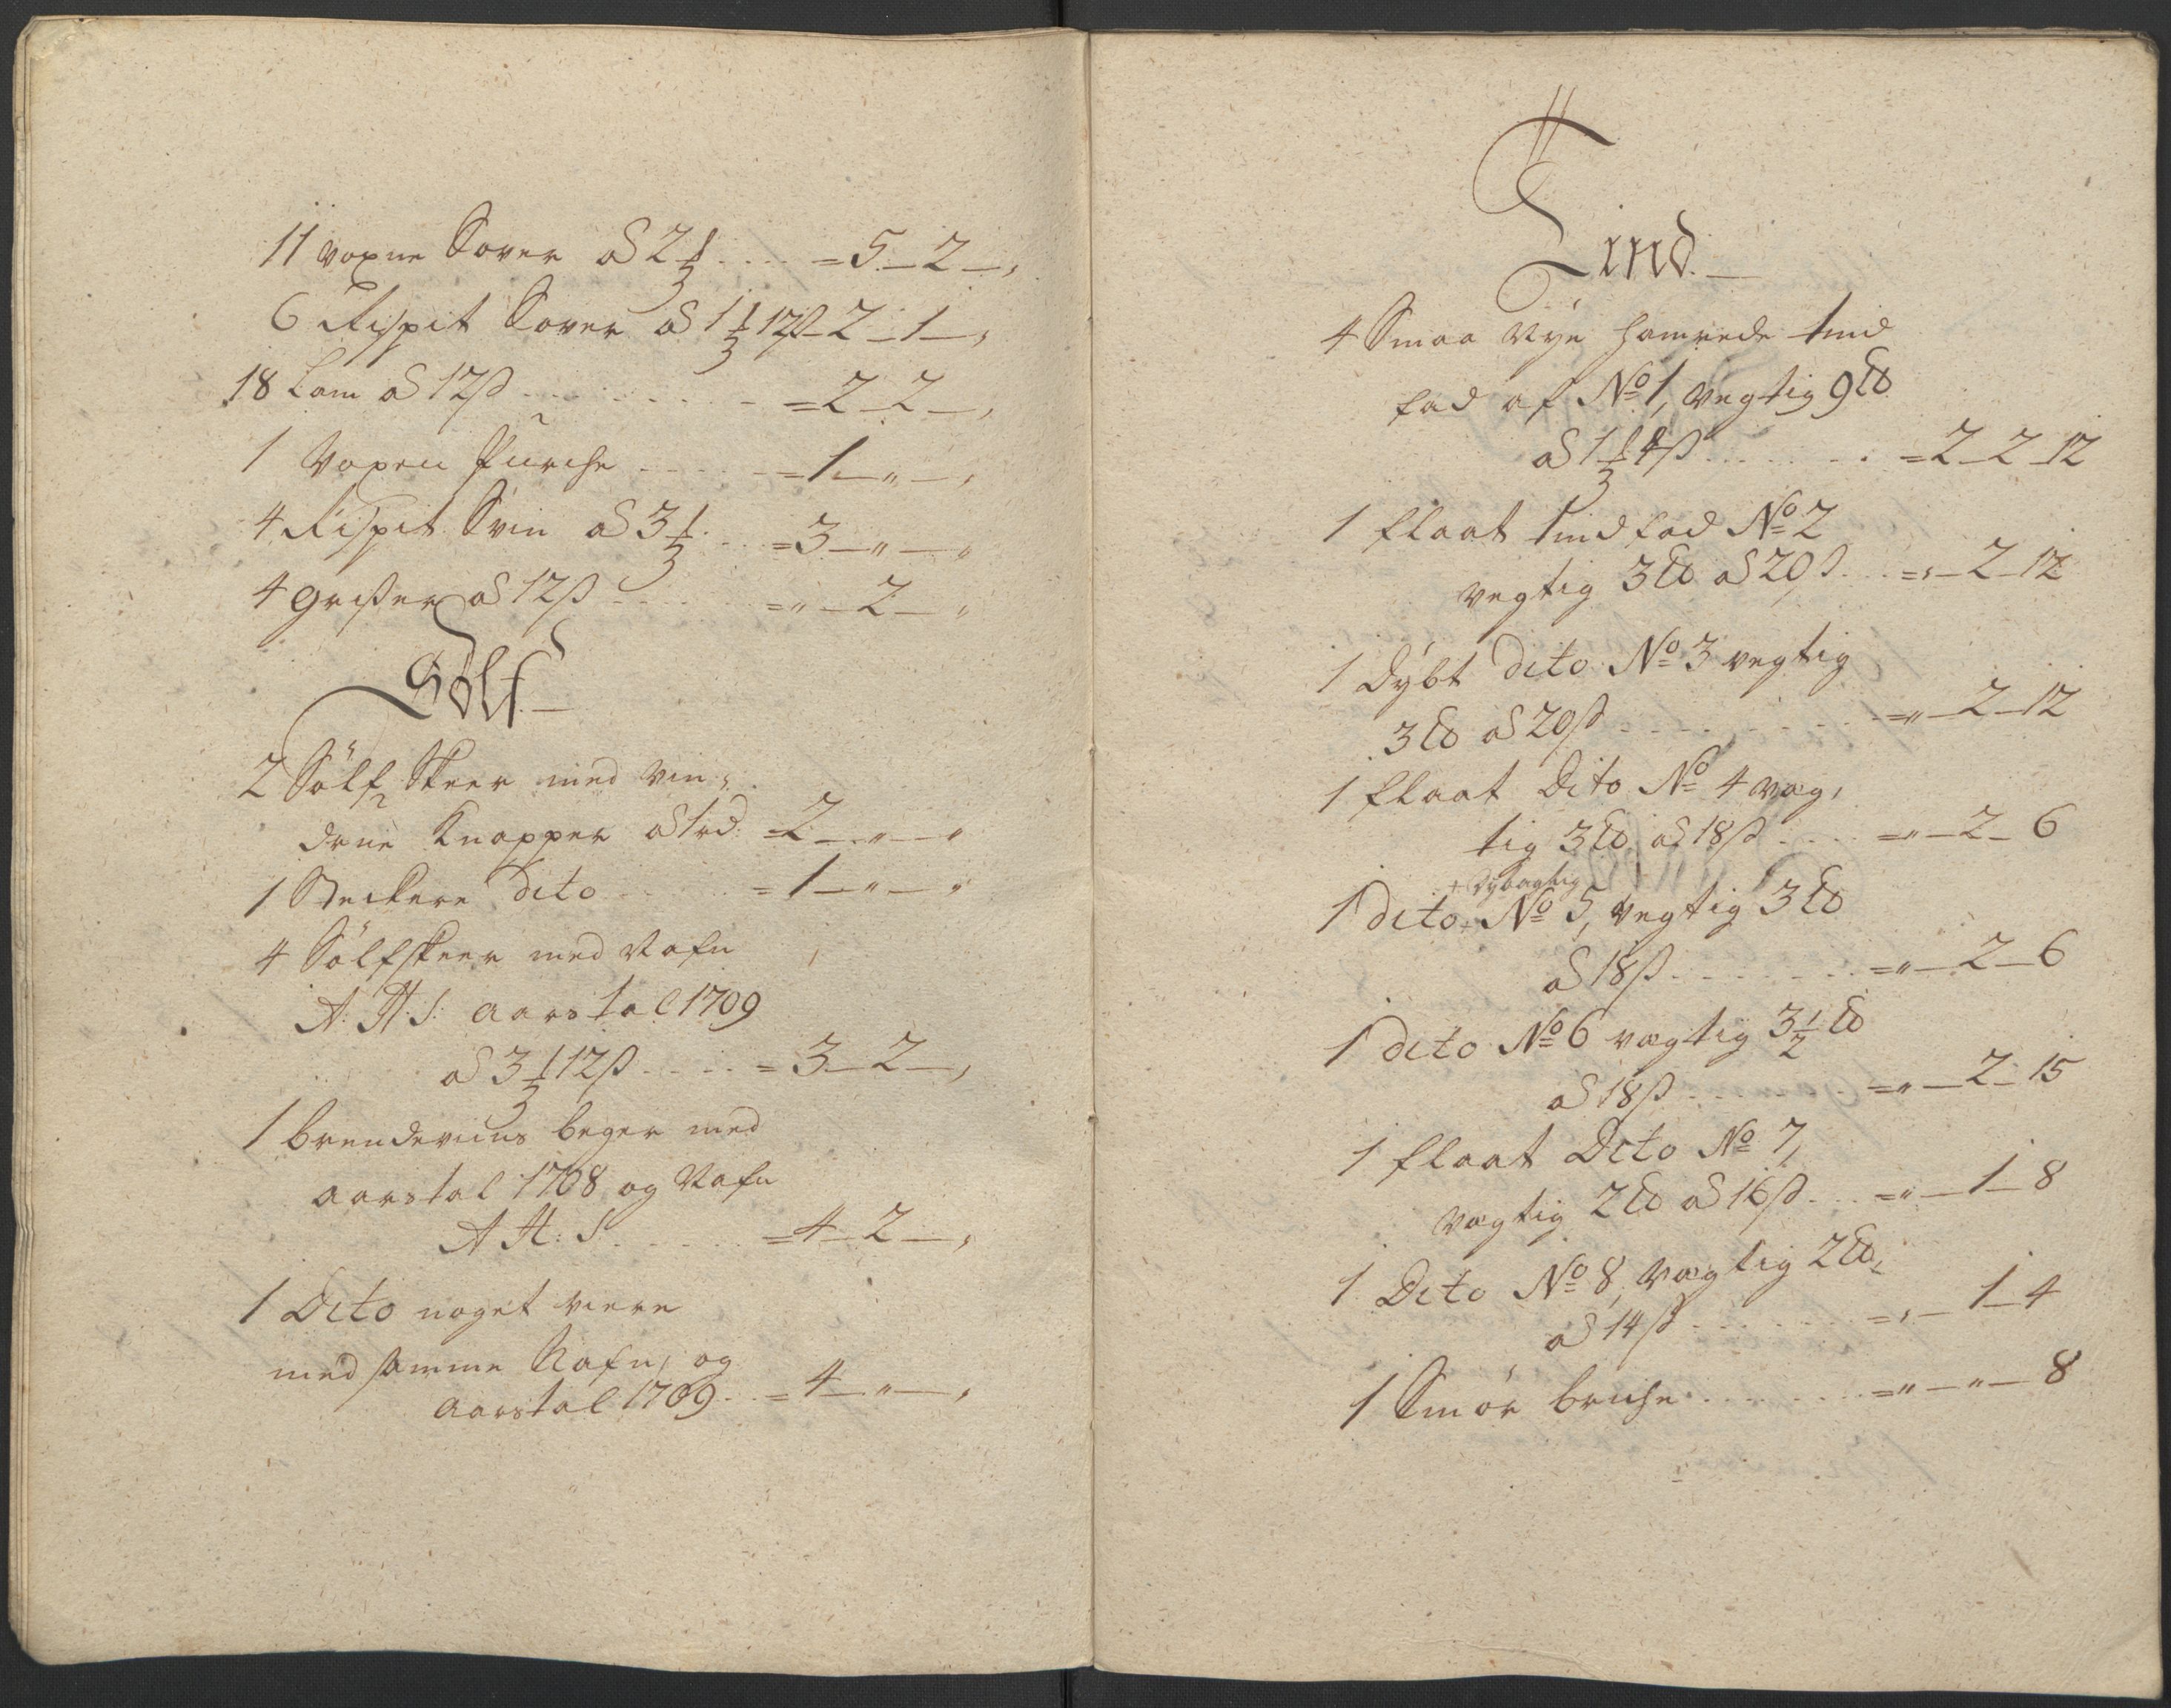 11 voxne Sover à 2 ⅓ .... = 5 – 2 – ,
6 Rispit Sover à 1 ⅓ 12ß – 2 – 1 – ,
18 Lam à 12ß ........ = 2 – 2 – ,
1 Voxen Purche ..... = 1 – „ – ,
4 Rispit Svin à 3 ⅓ ... = 3 – „ – „
4 Grißer à 12ß ...... = „ – 2 – „
Sölf –
2 Sölf Skeer med Vin,
drue Knapper à 1rd: = 2 – „ – „
1 Steckere dito ..... = 1 – „ – „
4 Sölfskeer med Nafn
A: H: S: aarstal 1709
à 3 ⅓ 12ß .... = 3 – 2 – ,
1 Brendeviins beger med
aarstal 1708 og Nafn
A H: S ..... = 4 – 2 – ,
1 Dito noget
med samme Nafn, og
aarstal 1709 .. = 4 – „ – ,
Tind. –
4 Smaa Nye hamrede tind
fad af No 1, vegtig 9 ℔
à 1 ⅓ 4ß ....... = 2 – 2 – 12
1 flaat tind fad No 2
vegtig 3 ℔ à 20ß ... = , – 2 – 12
1 Dybt dito No 3 vegtig
3 ℔ à 20ß ......... = „ – 2 – 12
1 flaat Dito No 4 væg,
tig 3 ℔ à 18ß .... = „ – 2 – 6
+
1 dito + No 5, vegtig 3 ℔
à 18ß ....... = „ – 2 – 6
1 dito No 6 vægtig 3 ½ ℔
à 18ß ....... = „ – 2 – 15
1 flaat Dito No 7,
vægtig 2 ℔ à 16ß ... = „ – 1 – 8
1 Dito No 8, vægtig 2 ℔,
à 14ß ....... = , – 1 – 4
1 Smör briche ....... = „ – „ – 8